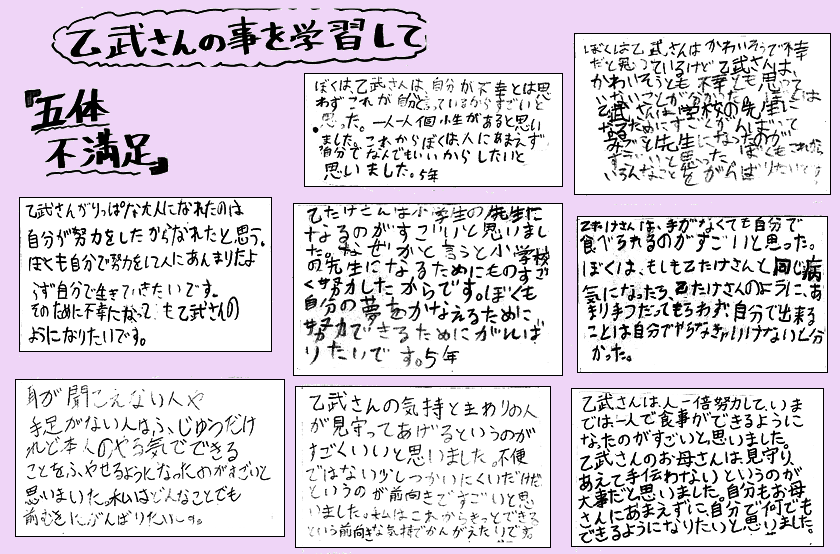 乙武さんの事を学習して
『五体
不満足』
ぼくは、乙武さんは、自分が不幸とは思
わずこれが自分と言っているからすごいと
思った。一人一人個小生があると思い
ました。これからぼくは人にあまえず
自分でなんでもいいからしたいと
思いました。5年
ぼくは乙武さんはかわいそうで不幸
だと思っているけど乙武さんは、
かわいそうとも不幸とも思って
いないことが分かった。
乙武さんは学校の先生に
なるためにすごくがんばって
みごと先生になったのが
すごいと思った。ぼくもこれから
いろんなことをがんばりたいです
乙武さんがりっぱな大人になれたのは
自分が努力をしたからなれたと思う。
ぼくも自分で努力をして人にあんまりたよ
らず自分で生きていきたいです。
そのために不幸になっても乙武さんの
ようになりたいです。
乙たけさんは小学生の先生に
なるのがすごいと思いまし
た。なぜかと言うと小学校
の先生になるためにものすご
く努力したからです。ぼくも
自分の夢をかなえるために
努力できるためにがんば
りたいです。5年
乙たけさんは、手がなくても自分で
食べられるのがすごいと思った。
ぼくは、もしも乙たけさんと同じ病
気になったら、乙たけさんのように、あ
まり手つだってもらわず、自分で出来る
ことは自分でやらなきゃいけないと分
かった。
耳が聞こえない人や
手足がない人はふじゆうだけ
れど本人のやる気でできる
ことをふやせるようになったのがすごいと
思いまいた。水いはどんなことでも
前むきにがんばりたいです
乙武さんの気持と主わりの人
が見守ってあげるというのが
すごくいいと思いました。不便
ではない少しつかいにくいだけだ
というのが前向きですごいと思
いました。私はこれからきっとできる
という前向きな気持でかんがえたりで
乙武さんは、人一倍努力して、いま
では一人で食事ができるように
なったのがすごいと思いました。
乙武さんのお母さんは見守り、
あえて手伝わないというのが
大事だと思いました。自分もお母
さんにあまえずに自分で何でも
できるようになりたいと思いました。